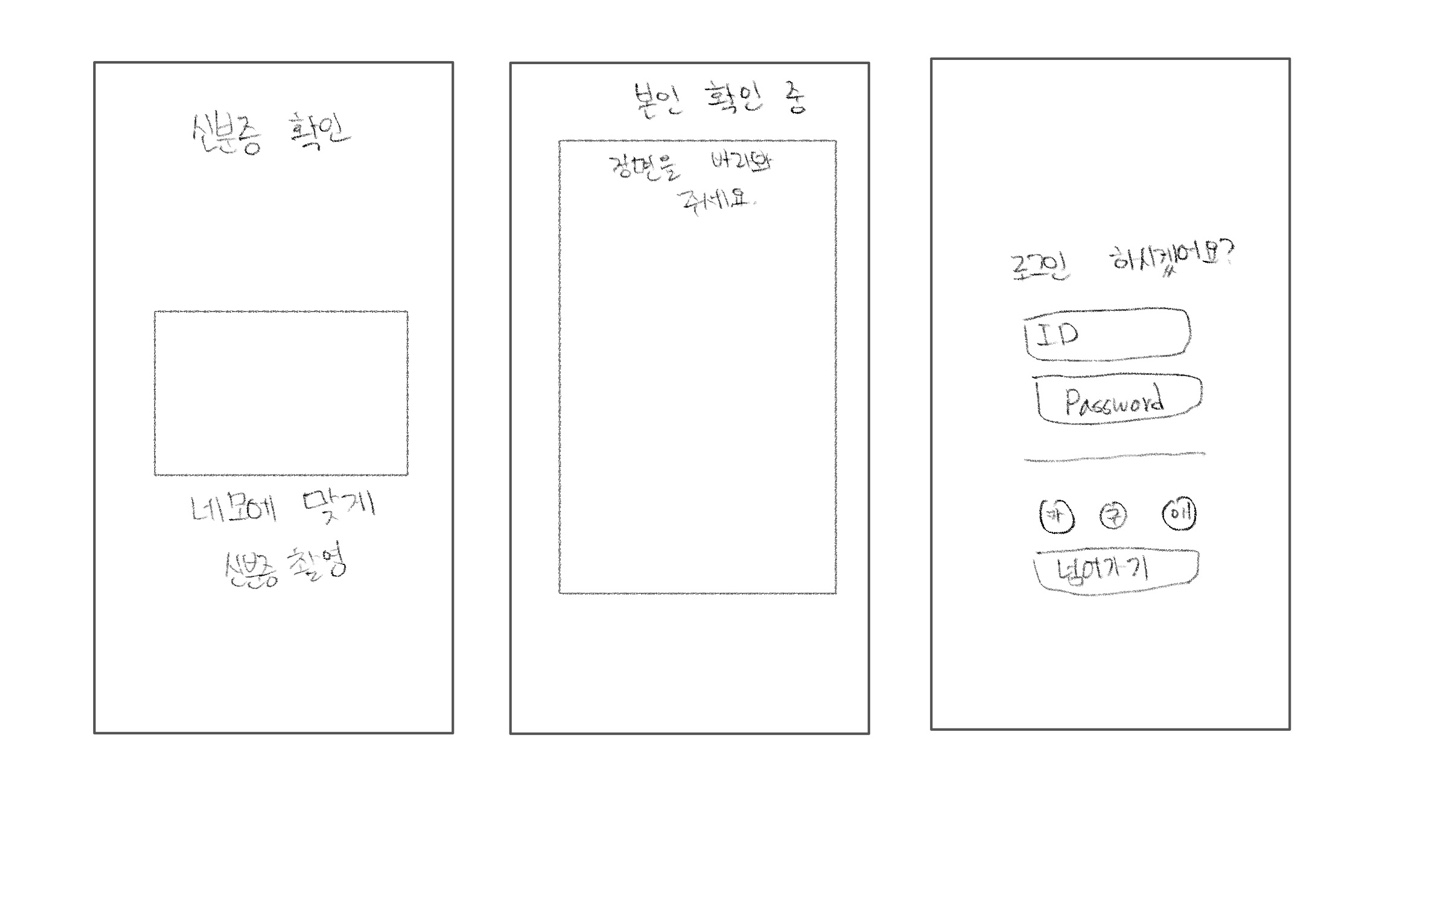 신분증 확인
네모에 맞게
신분증 촬영
본인 확인 중
정면을 바라봐
주세요.
로그인 하시겠어요?
ID
Password
카 구 애
넘어가기